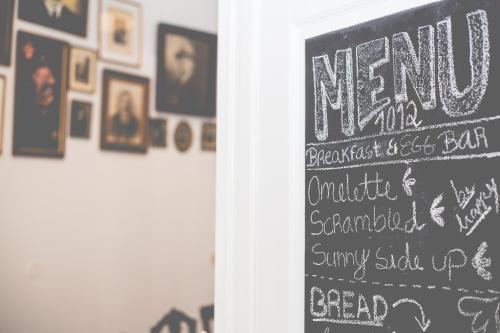 MENU
1012
BREAKFAST & EGG BAR
Omelette
Scrambled
by harry
Sunny side up
BREAD